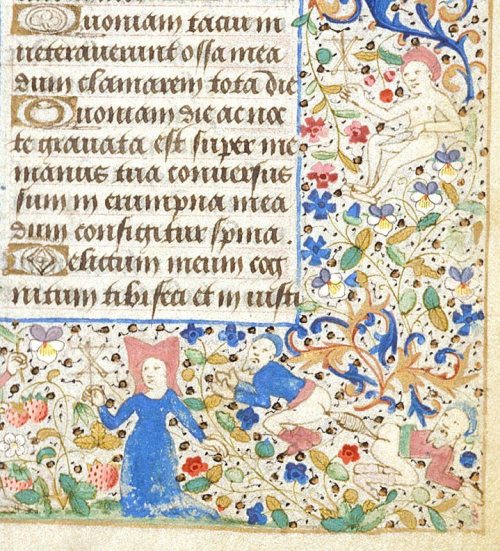 Quoniam tacui in
ueterauerunt ossa mea
dum clamarem tota die
Quoniam die ac noc
te grauata est super me
manus tua conuersus
sum in erumpna mea
dum configitur spina.
Delictum meum cog
nitum tibi feci et in iusti